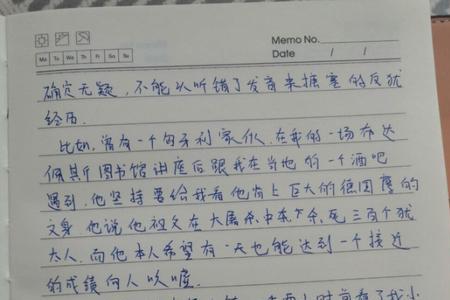 Memo No.
Mo Tu We Th Fr Sa Su
Date / /
确定无疑，不能以听错了发音来搪塞的反犹
经历.
比如，曾有一个匈牙利家伙，在我的一场布达
佩斯图书馆讲座后跟我在当地的一个酒吧
遇到，他坚持要给我看他背上巨大的德国鹰的
文身. 他说他祖父在大屠杀中杀死三百个犹
太人，而他本人希望有一天也能达到一个接近
的成绩向人吹嘘.